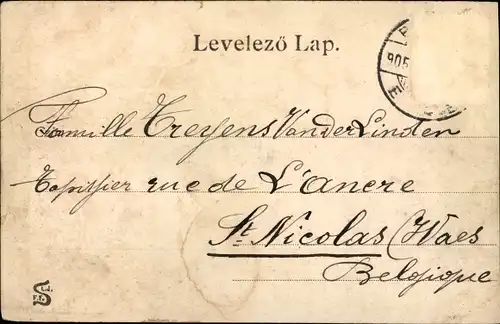 Levelező Lap.
905
Famille Treyens Van der Linden
Tapissier rue de L'Ancre
St. Nicolas (Waes
Belgique